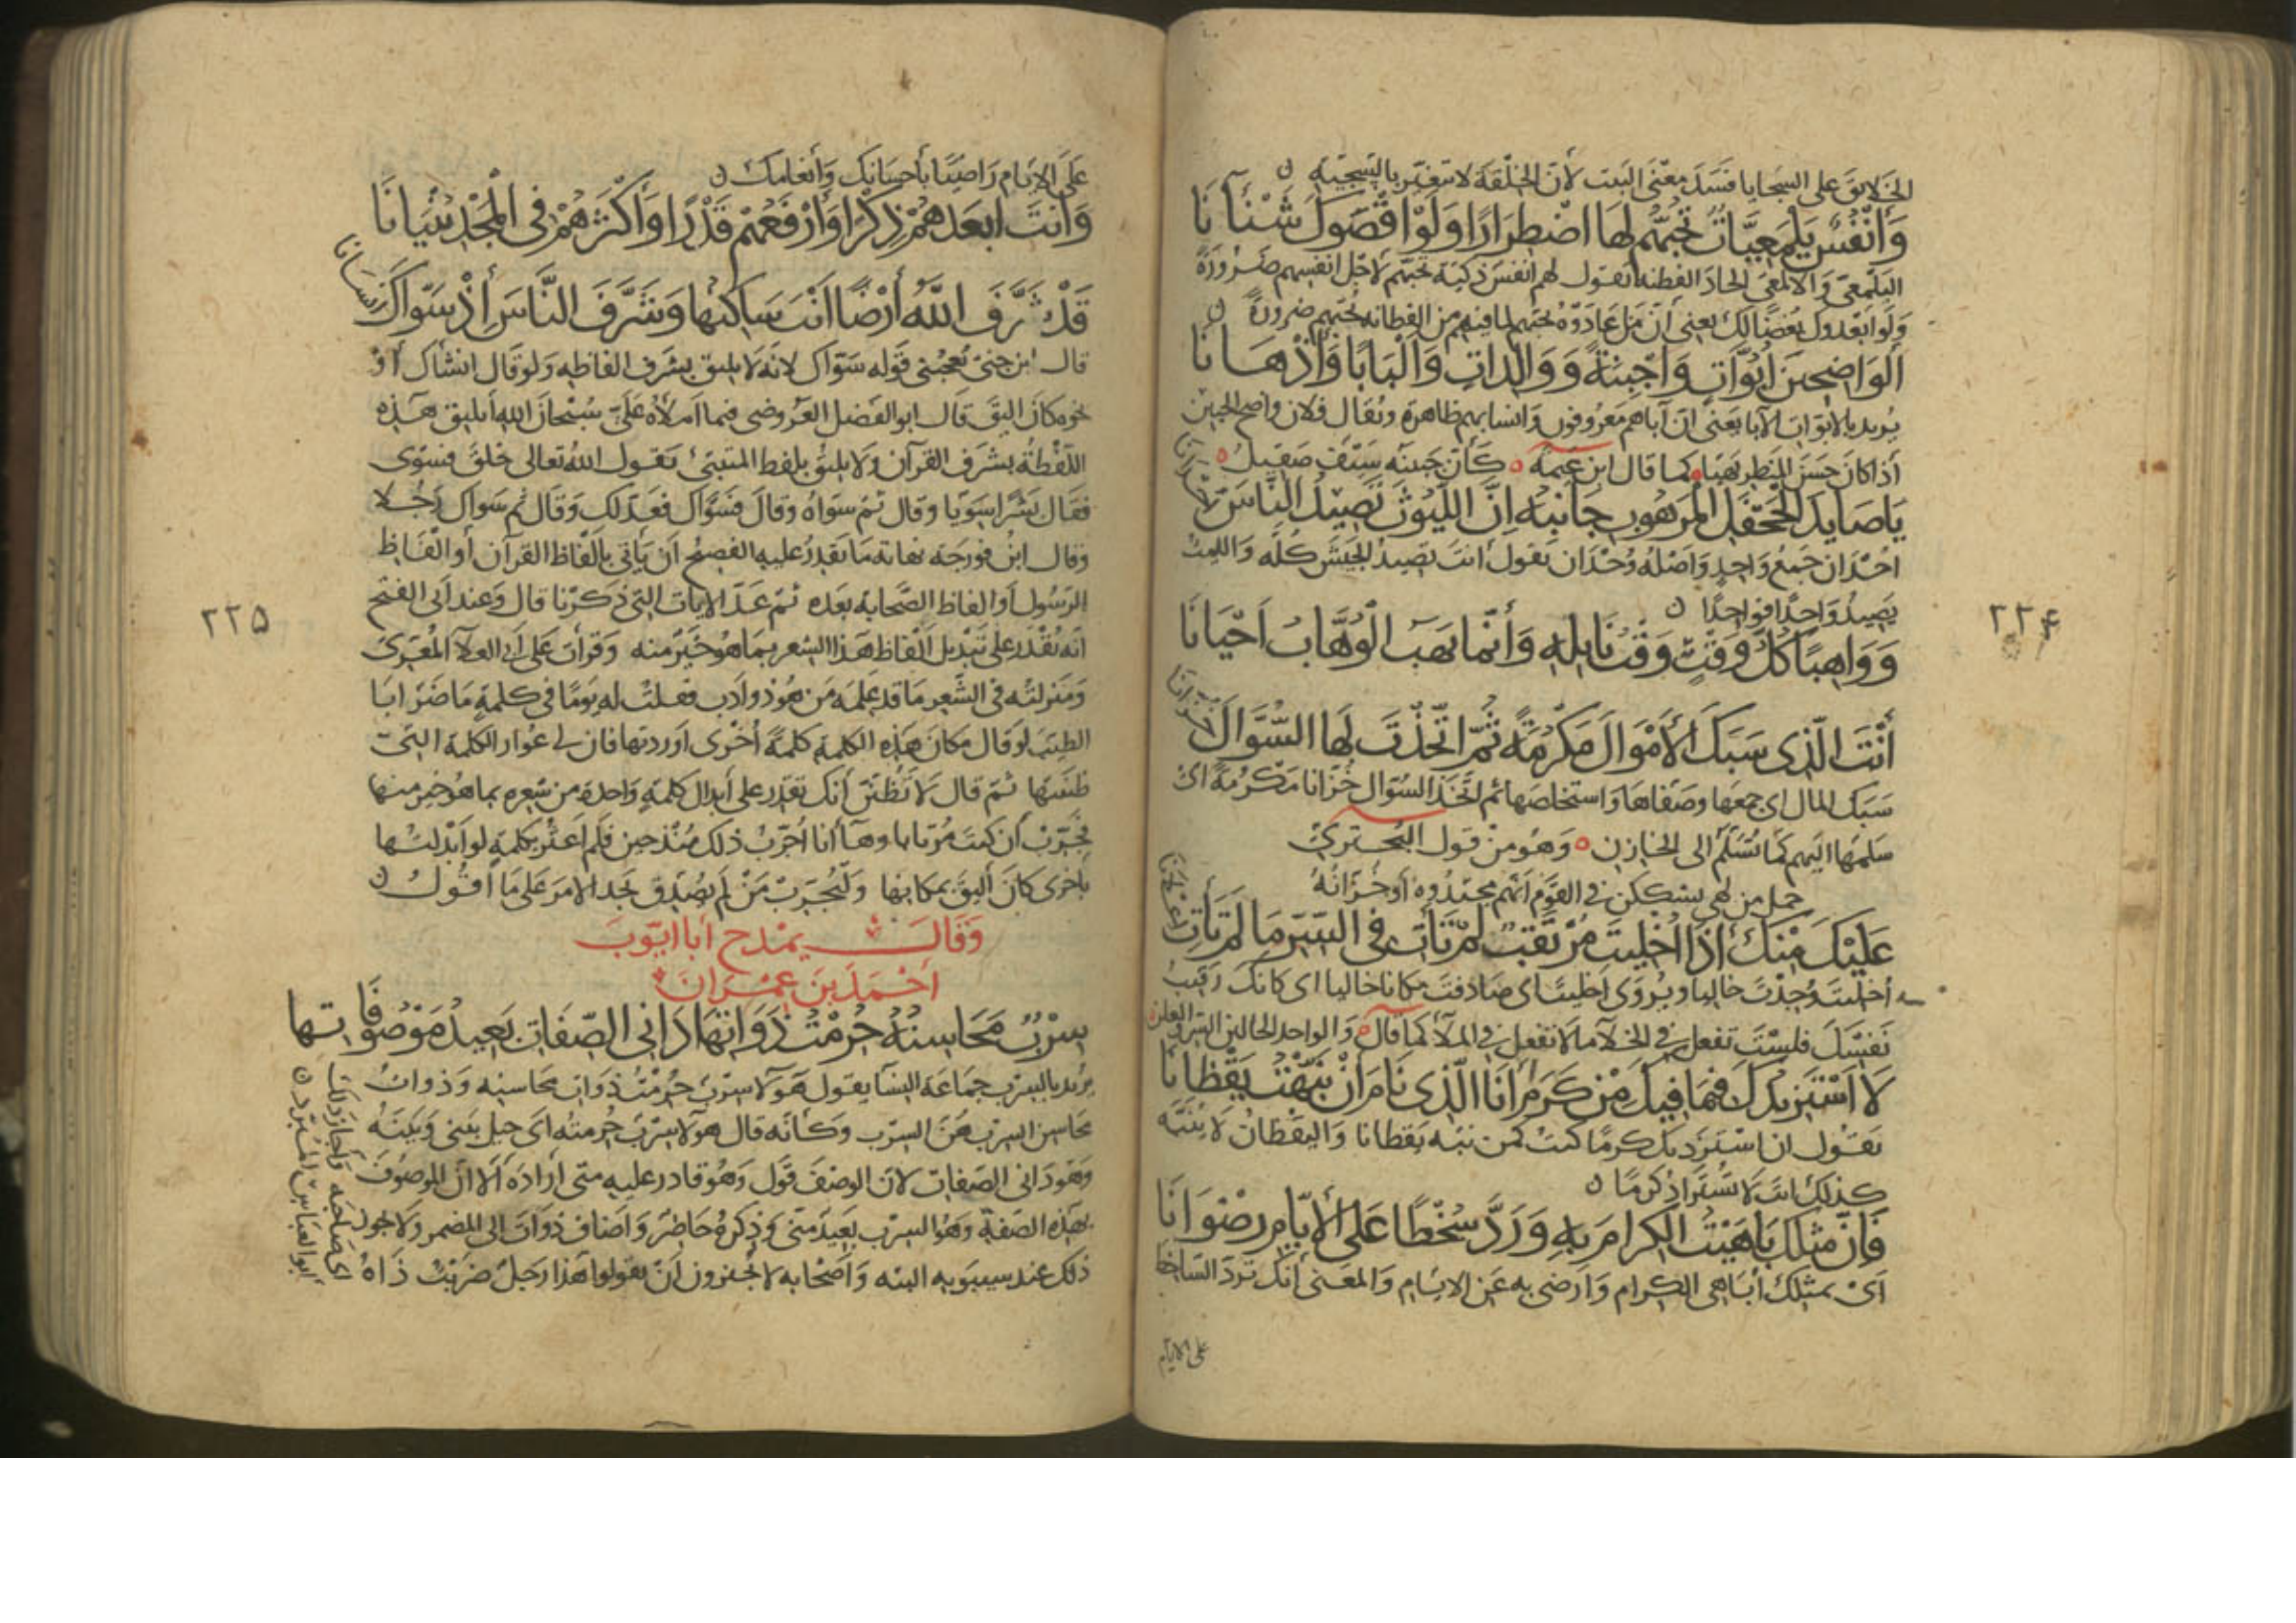 الخلايق على السجايا فسد معنى البيت لان الخلقة لا تتغير بالسجية
وَأَنْفُسٌ يَلْمَعِيَّاتٌ تُحِبُّهُمُ لَهَا اضْطِرَارًا وَلَوْ اقْصَوْكَ شَنْآنَا
اليلمعي والالمعي الحاد الفطنة يقول لهم انفس ذكية تحبهم لاجل انفسهم ضرورة
ولو ابعدوك بغضا لك يعني أن من عادوه يحبهم لما فيهم من الفطانة يحبهم ضرورة
الْوَاضِحِينَ أُبُوَّاتٍ وَأَجْبِنَةً وَوَالِدَاتٍ وَأَلْبَابًا وَأَذْهَانَا
يريد بالابوات الآبا يعنى ان آباهم معروفون وانسابهم ظاهرة ويقال فلان واضح الجبين
اذا كان حسن المنظر بهيا كما قال ابن عنمة كأن جبينه سيف صقيل
يَا صَايِدَ الْجَحْفَلِ الْمَرْهُوبِ جَانِبُهُ اِنَّ اللُّيُوثَ تَصِيدُ النَّاسَ
احدان جمع واحد واصله وحدان يقول انت تصيد الجيش كله والليث
يصيد واحدا فواحدا
وَوَاهِبًا كُلُّ وَقْتٍ وَقْتُ نَايِلِهِ وَأَنَّمَا يَهَبُ الْوُهَّابُ أَحْيَانَا
٢٢٤
أَنْتَ الَّذِي سَبَكَ الْأَمْوَالَ مَكْرُمَةً ثُمَّ اتَّخَذْتَ لَهَا السُّؤَّالَ
سبك المال اي جمعها وصفاها واستخلصها ثم اتخذ السؤال خزانا مكرمة اى
سلمها اليهم كما تسلم الى الخازن وهو من قول البحترى
جمل من لهي يشككن في القوم انهم مجتدوه او خزانه
عَلَيْكَ مِنْكَ اذَا اُخْلِيتَ مُرْتَقِبٌ لَمْ تَأْتِ فِي السِّرِّ مَا لَمْ تَأْتِ
أخليت وجدت خاليا ويروى اخليت اى صادفت مكانا خاليا اى كانك رقيب
نفسك فلست تفعل في الخلآ ما لا تفعل في الملآ كما قال والواحد الحالين السر والعلن
لَا أَسْتَزِيدُكَ فِيمَا فِيكَ مِنْ كَرَمٍ أَنَا الَّذِي نَامَ أَنْ نَبَّهْتُ يَقْظَانَا
يقول ان استزدتك كرما كنت كمن نبه يقظانا واليقظان لا ينبه
كذلك انت لا تستزاد كرما
فَإِنَّ مِثْلَكَ بَاهَيْتُ الْكِرَامَ بِهِ وَرَدَّ سُخْطًا عَلَى الْأَيَّامِ رِضْوَانَا
اى بمثلك أباهي الكرام وارضى به عن الايام والمعنى أنك ترد الساخط
على الايام
على الايام راضيا بأحسانك وأنعامك
وَأَنْتَ ابْعَدُهُمْ ذِكْرًا وَأَرْفَعُهُمْ قَدْرًا وَأَكْثَرُهُمْ فِي الْمَجْدِ بُنْيَانَا
قَدْ شَرَّفَ اللَّهُ أَرْضًا أَنْتَ سَاكِنُهَا وَشَرَّفَ النَّاسَ أِذْ سَوَّاكَ
إنسانا
قال ابن جني يعجبني قوله سواك لانه لا يليق بشرف الفاظه ولو قال انشاك أو
نحوه كان اليق قال ابو الفضل العروضي فيما املاه على سبحان الله أيليق هذه
اللفظة بشرف القرآن ولا يليق بلفظ المتنبئ يقول الله تعالى خلق فسوى
فقال بشرا سويا وقال ثم سواه وقال فسواك فعدلك وقال ثم سواك رجلا
وقال ابن فورجة نهاية ما يقدر عليه الفصيح أن ياتي بالفاظ القرآن أو الفاظ
الرسول أو الفاظ الصحابة بعده ثم عد الايات التي ذكرنا قال وعند ابى الفتح
٢٢٥
أنه يقدر على تبديل الفاظ هذا الشعر بما هو خير منه وقرأت على أبي العلآ المعرى
ومنزلته في الشعر ما قد علمه من هو ذو ادب فقلت له يوما في كلمة ما ضر ابا
الطيب لو قال مكان هذه الكلمة كلمة أخرى أوردتها فأبان لي عوار الكلمة التي
ظننتها ثم قال لا تظنن أنك تقدر على أبدال كلمة واحدة من شعره بما هو خير منها
فجرب أن كنت مرتابا وها أنا أجرب ذلك منذ حين فلم اعثر بكلمة لو ابدلتها
باخرى كان أليق بمكانها وليجرب من لم يصدق يجد الامر على ما أقول
وَقَالَ يَمْدَح أَبَا أيّوبَ
أَحْمَدَ بن عِمْرَانَ
سِرْبٌ مَحَاسِنُهُ حُرِمْتُ ذَوَاتِهَا دَانِى الصِّفَاتِ بَعِيدُ مَوْصُوفَاتِهَا
يريد بالسرب جماعة النسآ يقول هولا سرب حرمت ذوات محاسنه وذوات
محاسن السرب هن السرب وكأنه قال هولا سرب حرمته اى حيل بيني وبينه
وهو دانى الصفات لان الوصف قول وهو قادر عليه متى اراده الا ان الموصوف
بهذه الصفة وهو السرب بعيد منى وذكره حاضر واضاف ذوات الى المضمر ولا يجوز
ذلك عند سيبويه البته واصحابه لا يجيزون ان يقولوا هذا رجل ضربت ذاه
اى صاحبه واجاز ذلك
ابو العباس المبرد